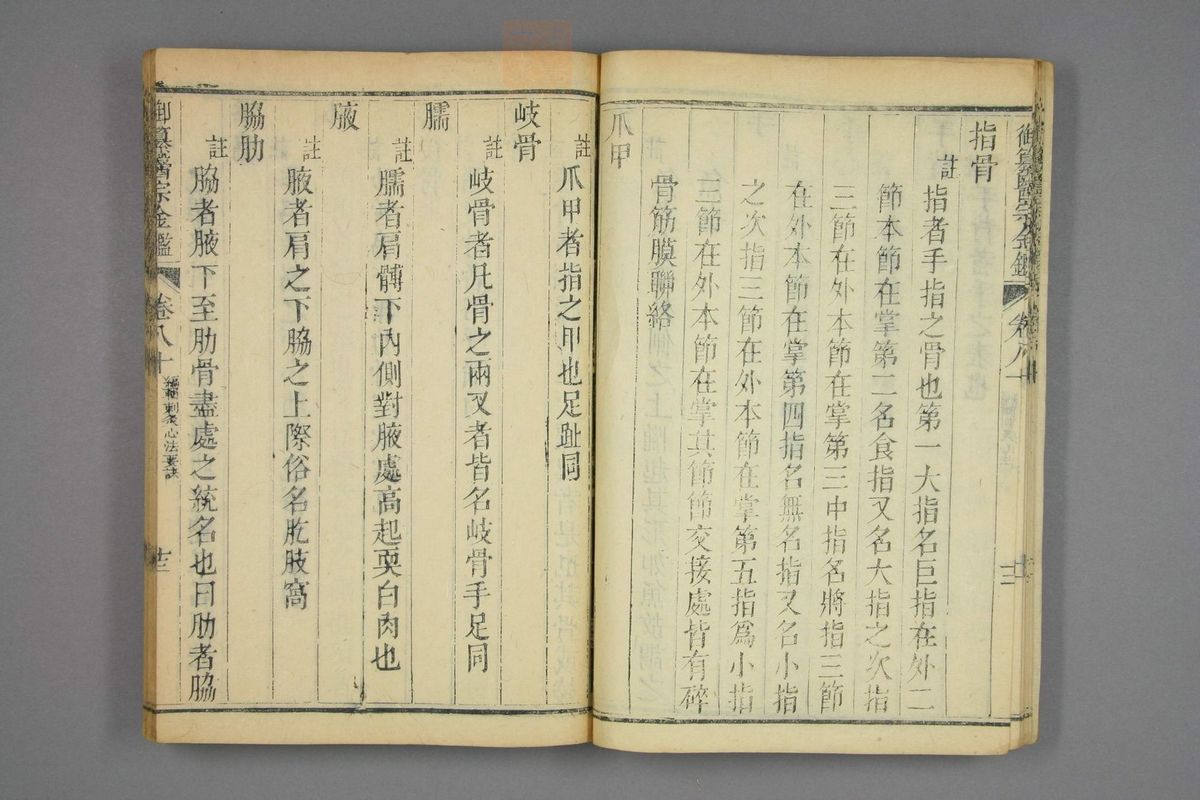 御纂醫宗金鑑
指骨
註
指者手指之骨也第一大指名巨指在外二
節本節在掌第二名食指又名大指之次指
三節在外本節在掌第三中指名將指三節
在外本節在掌第四指名無名指又名小指
之次指三節在外本節在掌第五指爲小指
三節在外本節在掌其節節交接處皆有碎
骨筋膜聯絡
爪甲
註
爪甲者指之甲也足趾同
岐骨
註
岐骨者凡骨之兩叉者皆名岐骨手足同
臑
註
臑者肩髆下內側對腋處高起耎白肉也
腋
註
腋者肩之下脇之上際俗名肐肢窩
脇肋
註
脇者腋下至肋骨盡處之統名也曰肋者脇
御纂醫宗金鑑 卷八十 編輯刺灸心法要訣 十三